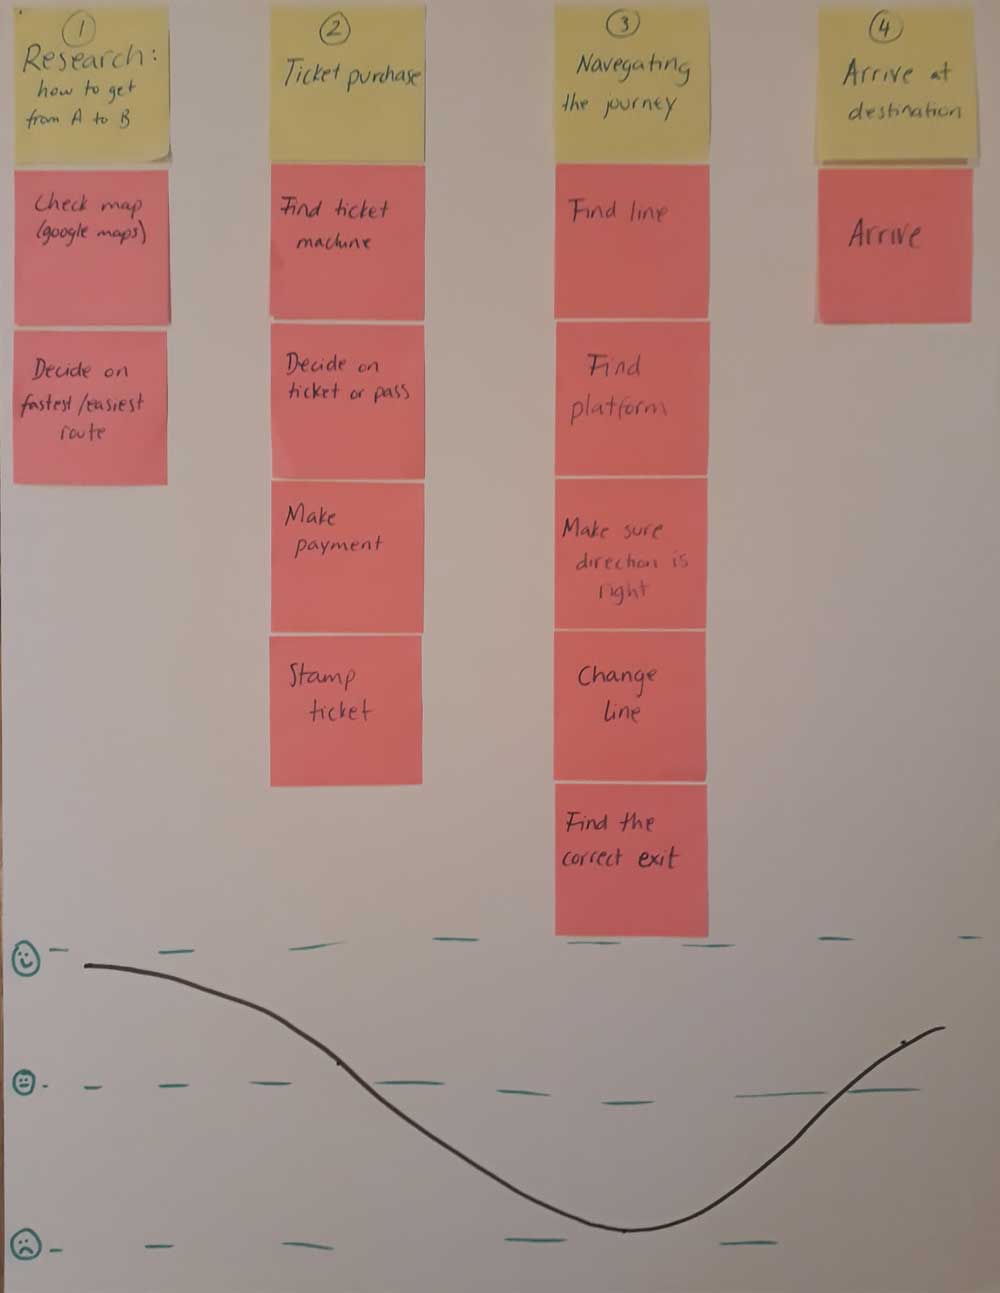 1
Research:
how to get
from A to B
Check map
(google maps)
Decide on
fastest/easiest
route
2
Ticket purchase
Find ticket
machine
Decide on
ticket or pass
Make
payment
Stamp
ticket
3
Navegating
the journey
Find line
Find
platform
Make sure
direction is
right
Change
line
Find the
correct exit
4
Arrive at
destination
Arrive